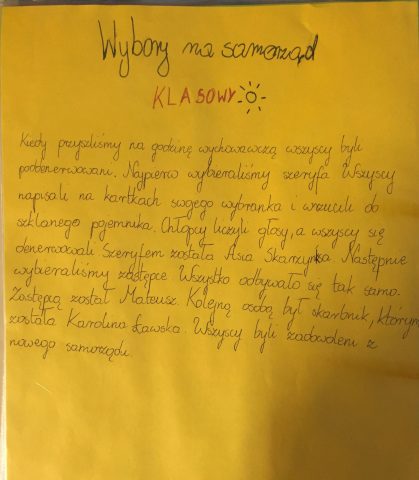 Wybory na samorząd
KLASOWY
Kiedy przyszliśmy na godzinę wychowawczą wszyscy byli
poddenerwowani. Najpierw wybieraliśmy szeryfa Wszyscy
napisali na kartkach swojego wybranka i wrzucili do
szklanego pojemnika. Chłopcy liczyli głosy, a wszyscy się
denerwowali Szeryfem została Asia Skarzynka. Następnie
wybieraliśmy zastępce Wszystko odbywało się tak samo.
Zastępcą został Mateusz. Kolejną osobą był skarbnik, którym
została Karolina Ławska. Wszyscy byli zadowoleni z
nowego samorządu.